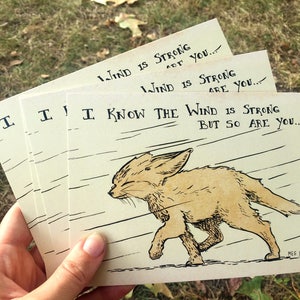 Wind is Strong
are you...
Wind is Strong
are you...
I I I Know the Wind is Strong
but so are you...